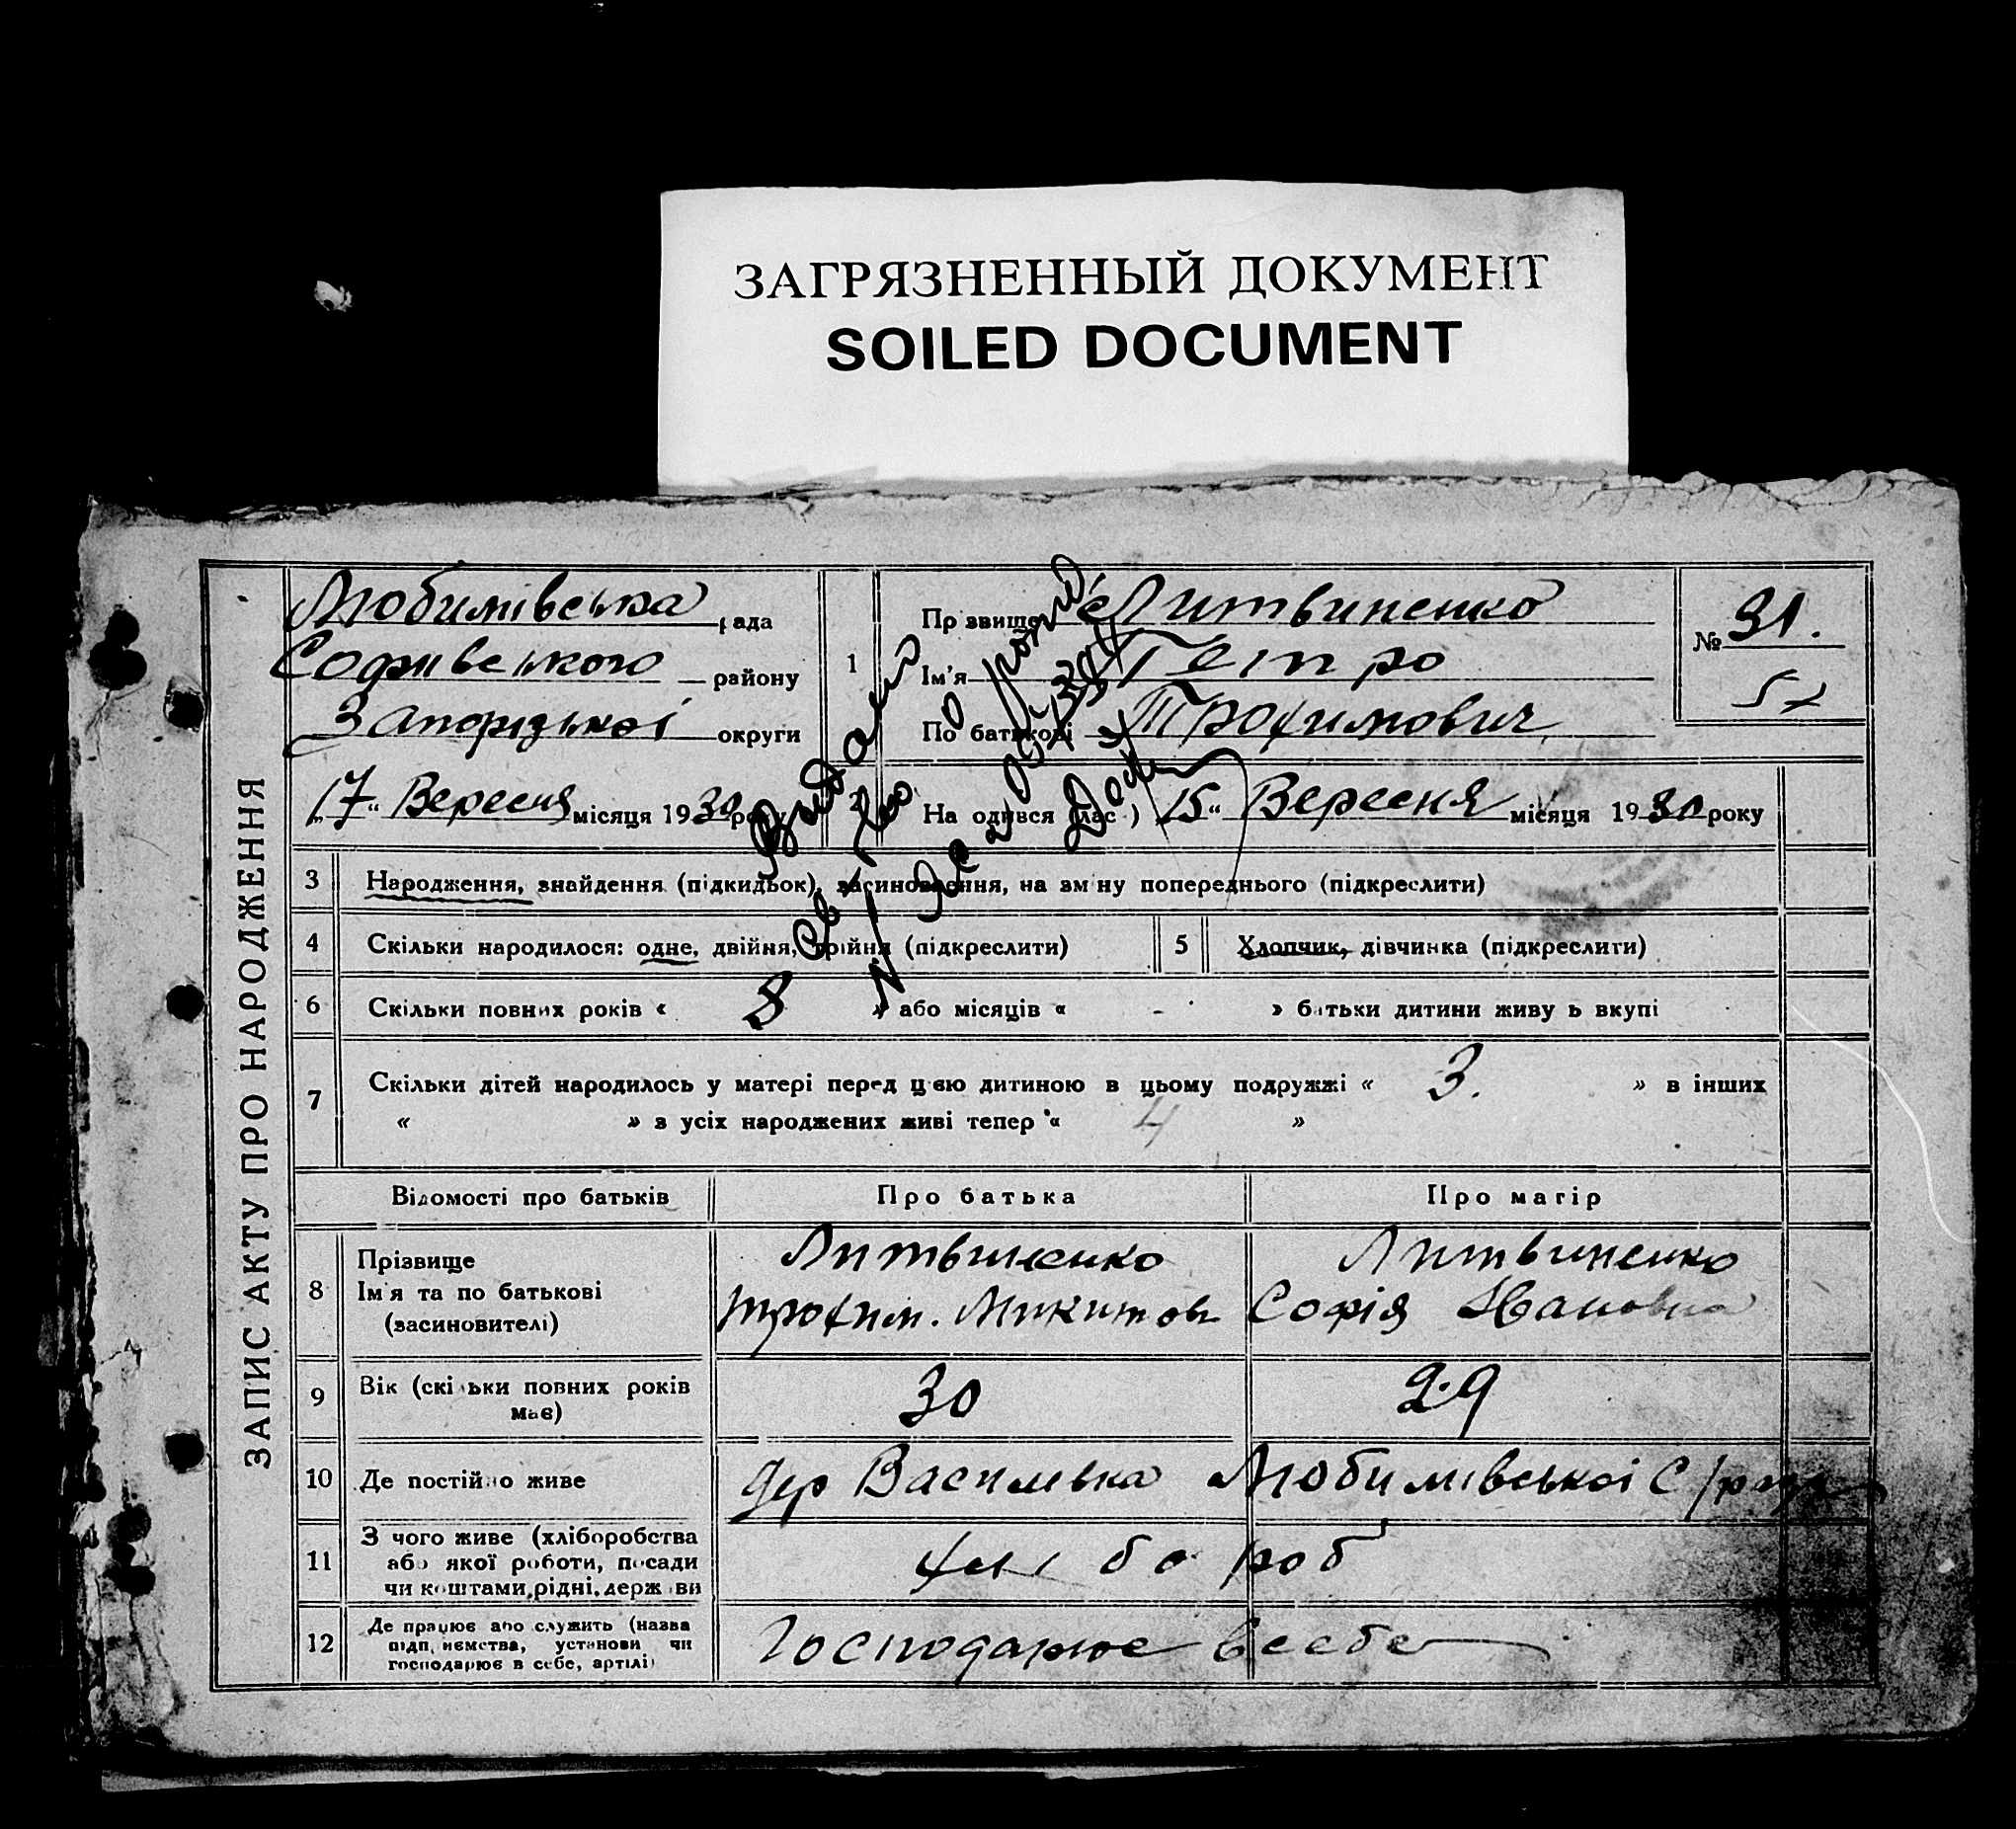 ЗАГРЯЗНЕННЫЙ ДОКУМЕНТ
SOILED DOCUMENT
ЗАПИС АКТУ ПРО НАРОДЖЕННЯ
Любимівська рада
Софиївського району
Запорізької округи
„17“ Вересня місяця 1930 року
1
Прізвище Литвиненко
Ім'я Петро
По батькові Трохимович
№ 31.
57
2
На одився (лас ) „15“ Вересня місяця 1930 року
Видано
Св. про
3 Народження, знайдення (підкидьок), засиновлення, на зм ну попереднього (підкреслити)
4 Скільки народилося: одне, двійня, трійня (підкреслити)
5 Хлопчик, дівчинка (підкреслити)
6 Скільки повних років « 8 » або місяців « - » батьки дитини живу ь вкупі
7 Скільки дітей народилось у матері перед цією дитиною в цьому подружжі « 3. » в інших
« » з усіх народжених живі тепер « 4 »
Відомості про батьків Про батька Про матір
8 Прізвище
Ім'я та по батькові
(засиновителі)
Литвиненко
Трохим. Микитов
Литвиненко
Софія Ивановна
9 Вік (скільки повних років
має)
30
29
10 Де постійно живе
дер Василівка Любимівської С/ради
11 З чого живе (хліборобства
або якої роботи, посади
чи коштами,рідні,держ ви
хлібороб
12 Де працює або служить (назва
підп иємства, установи чи
господарює в себе, артілі)
Господарює всебе